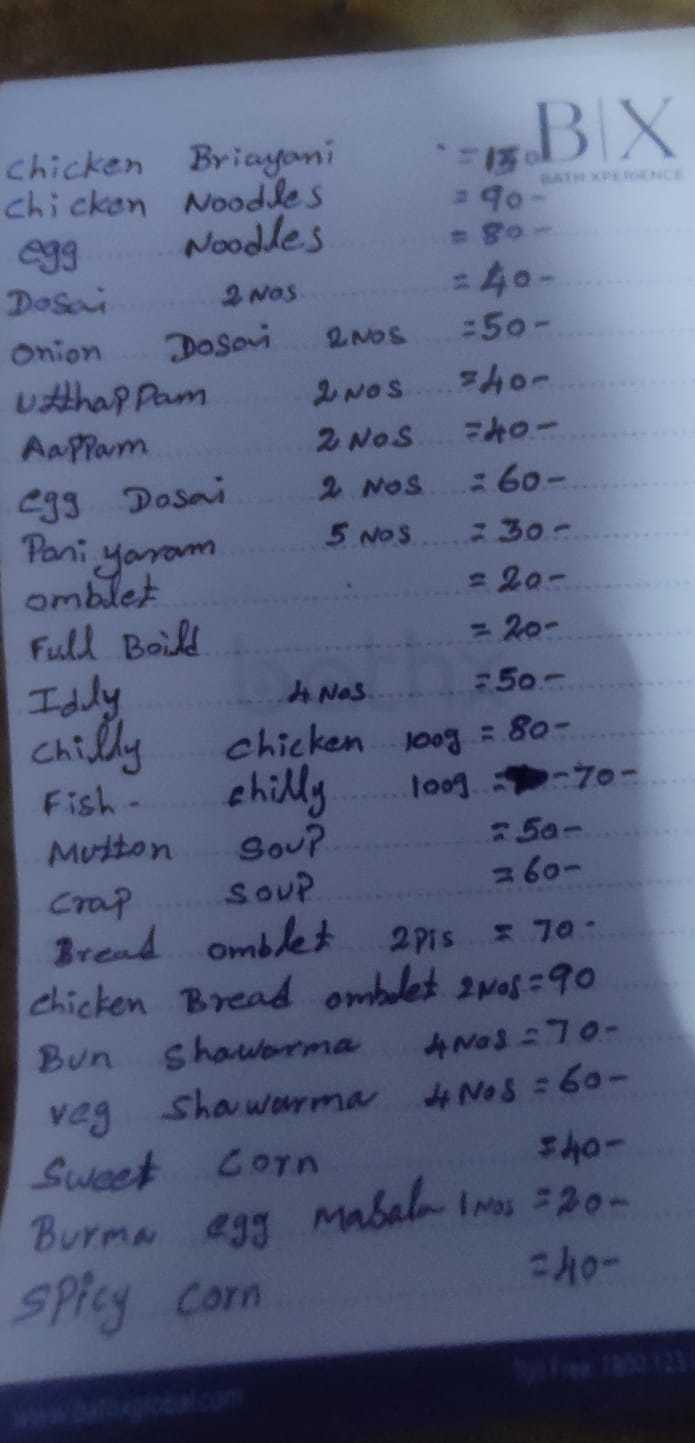 B|X
BATH XPERIENCE
Chicken Briayani
Chicken Noodles = 90-
egg Noodles = 80-
Dosai 2 Nos = 40-
Onion Dosai 2 Nos = 50-
Utthappam 2 Nos = 40-
Aappam 2 Nos = 40-
egg Dosai 2 Nos = 60-
Pani yaram 5 Nos = 30-
omblet = 20-
Full Boild = 20-
Iddly 4 Nos = 50-
Chilly chicken 100g = 80-
Fish - chilly 100g = -70-
Mutton Soup = 50-
Crap Soup = 60-
Bread omblet 2 Pis = 70-
Chicken Bread omblet 2 Nos = 90
Bun Shawarma 4 Nos = 70-
veg Shawarma 4 Nos = 60-
Sweet Corn = 40-
Burma egg Masala 1 Nos = 20-
Spicy Corn = 40-